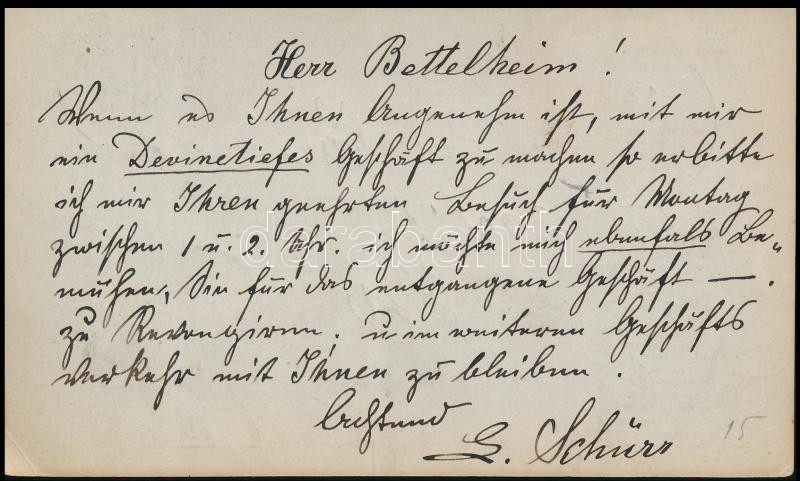 Herr Bettelheim!
Wenn es Ihnen Angenehm ist, mit mir
ein Devinetiefes Geschäft zu machen so erbitte
ich mir Ihren geehrten Besuch für Montag
zwischen 1 u. 2. Uhr. ich möchte mich ebenfals Be„
mühen, Sie für das entgangene Geschäft —.
zu Revongiren. u im weiteren Geschäfts
Verkehr mit Ihnen zu bleiben.
Achtend
S. Schürr
15
darabanth